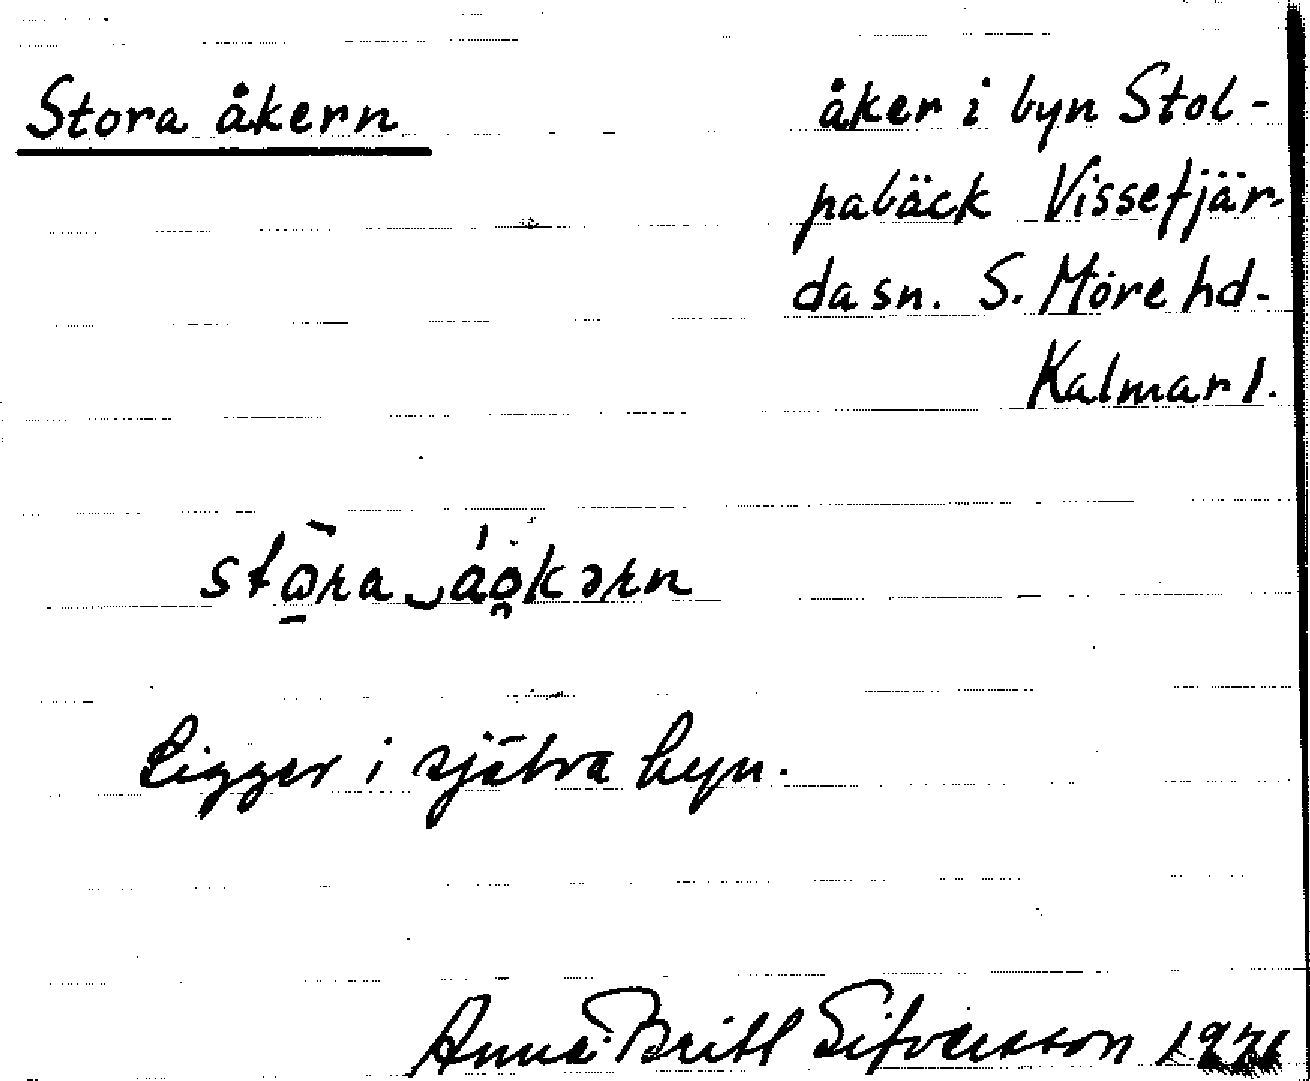 Stora åkern
åker i byn Stol-
pabäck Vissefjär-
da sn. S. Möre hd.
Kalmar l.
ligger i själva byn.
Anna-Britt Sifversson